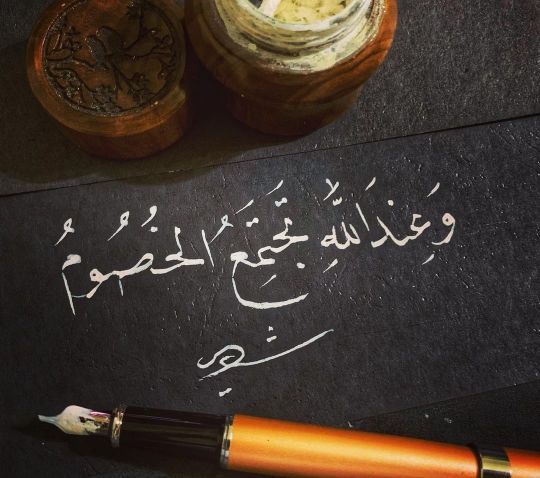 وَعِندَ اللَّهِ تَجْتَمِعُ الخُصُومُ